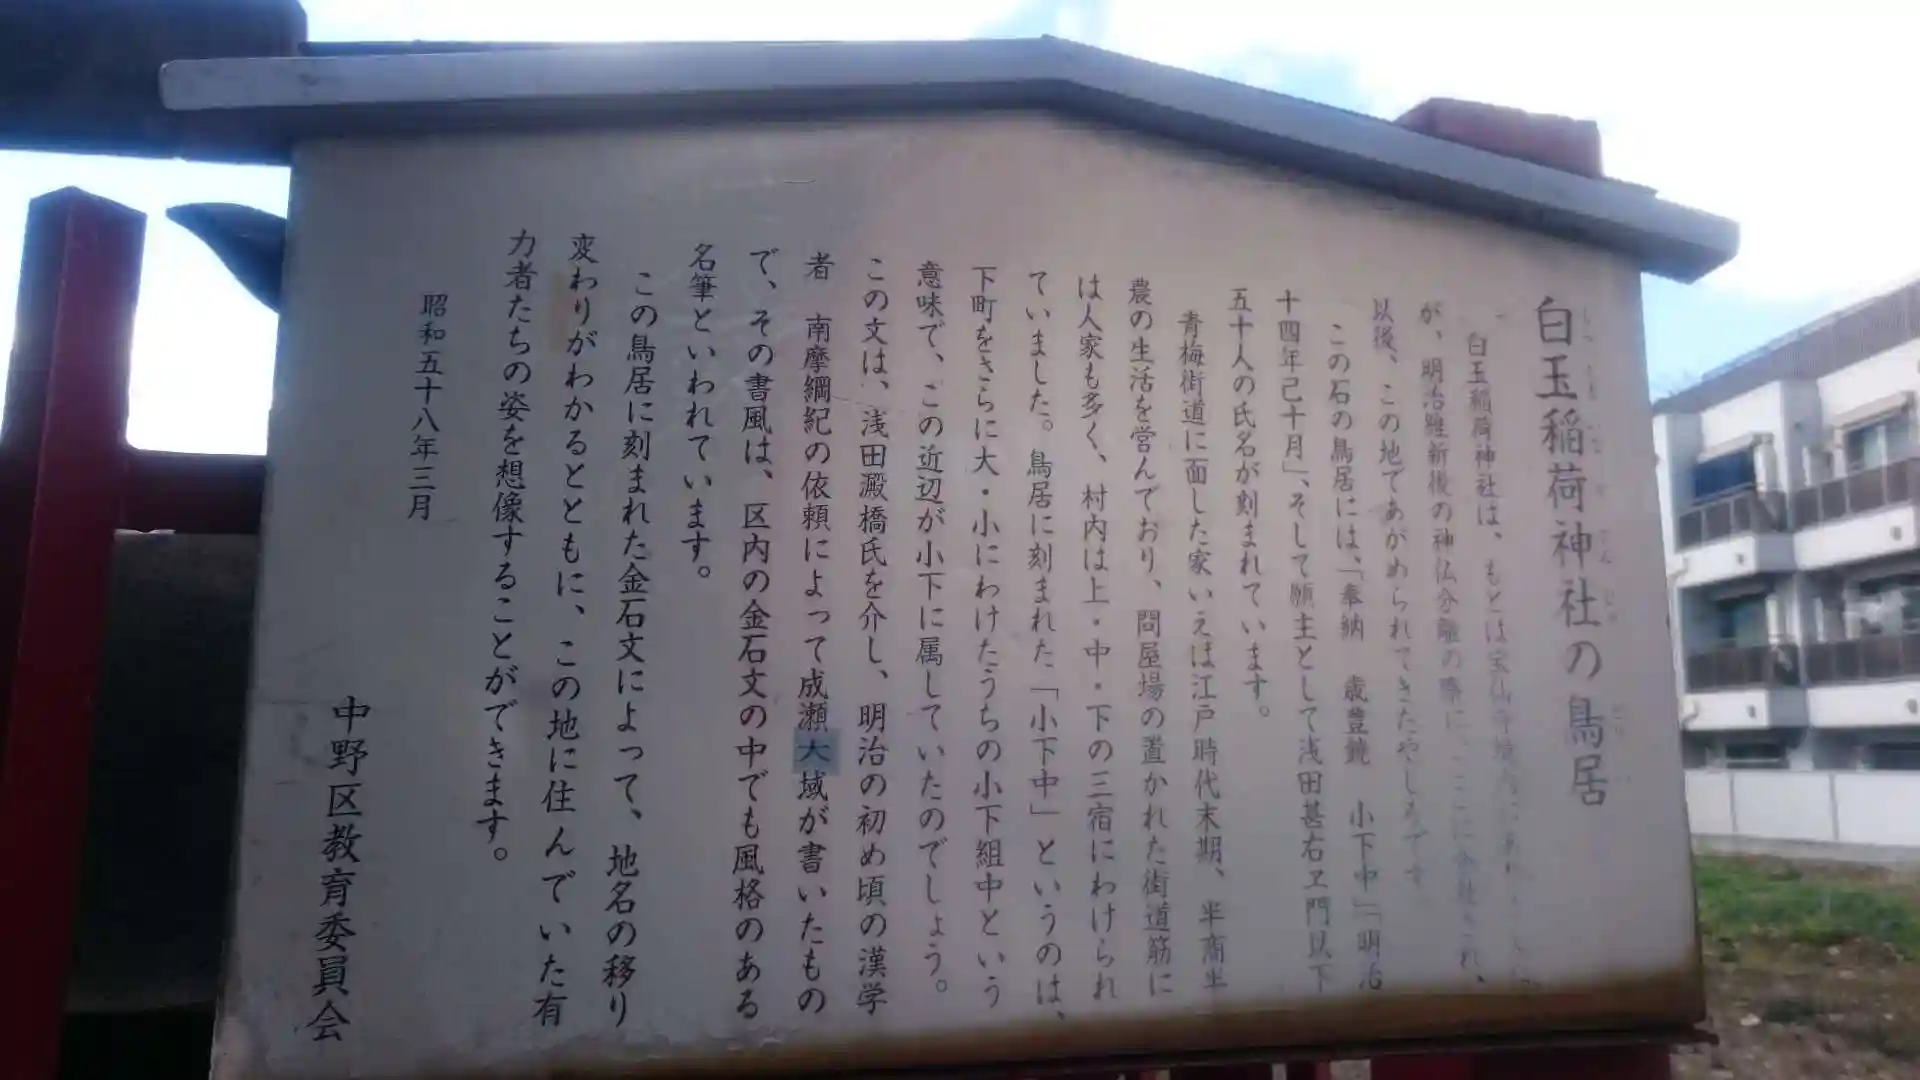 白玉稲荷神社の鳥居
白玉稲荷神社は、もとは宝仙寺境内にあり
が、明治維新後の神仏分離の際に、ここに合社され、
以後、この地であがめられてきたやしろです。
この石の鳥居には、「奉納 歳豊饒 小下中」「明治
十四年己十月」、そして願主として浅田甚右ヱ門以下
五十人の氏名が刻まれています。
青梅街道に面した家いえは江戸時代末期、半商半
農の生活を営んでおり、問屋場の置かれた街道筋に
は人家も多く、村内は上・中・下の三宿にわけられ
ていました。鳥居に刻まれた「小下中」というのは、
下町をさらに大・小にわけたうちの小下組中という
意味で、この近辺が小下に属していたのでしょう。
この文は、浅田澱橋氏を介し、明治の初め頃の漢学
者 南摩綱紀の依頼によって成瀬大域が書いたもの
で、その書風は、区内の金石文の中でも風格のある
名筆といわれています。
この鳥居に刻まれた金石文によって、地名の移り
変わりがわかるとともに、この地に住んでいた有
力者たちの姿を想像することができます。
昭和五十八年三月
中野区教育委員会